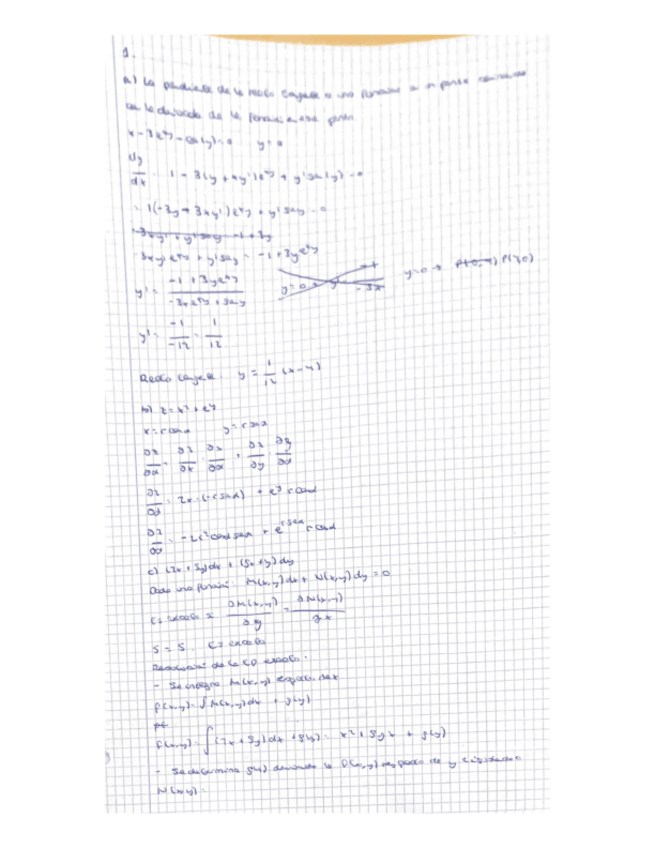 1.
a) La pendiente de la recta tangente a una función en un punto
es la derivada de la función en ese punto.
x - 3e^xy - cos(y) = 0 y = 0
dy/dx = 1 - 3(y + xy')e^xy + y'sen(y) = 0
= 1(-3y + 3xy')e^xy + y'sen y = 0
-3xy'e^xy + y'sen y = -1 + 3ye^xy
y' = (-1 + 3ye^xy)/(-3xe^xy + sen y) y = 0 → P(4,0)
y' = -1/-12 = 1/12
Recta tangente: y = 1/12 (x - 4)
b) z = x² + e^y
x = r cos α y = r sen α
∂z/∂α = ∂z/∂x · ∂x/∂α + ∂z/∂y · ∂y/∂α
∂z/∂α = 2x · (-r sen α) + e^y r cos α
∂z/∂α = -2r² cos α sen α + e^(r sen α) r cos α
c) (2x + 5y)dx + (5x + y)dy
Dada una función: M(x,y)dx + N(x,y)dy = 0
Es exacta si ∂M(x,y)/∂y = ∂N(x,y)/∂x
5 = 5 Es exacta
Resolución de la ED exacta:
- Se integra M(x,y) respecto de x
f(x,y) = ∫M(x,y)dx + g(y)
f(x,y) = ∫(2x + 5y)dx + g(y) = x² + 5yx + g(y)
- Se determina g(y) derivando la f(x,y) respecto de y e igualando a
N(x,y).